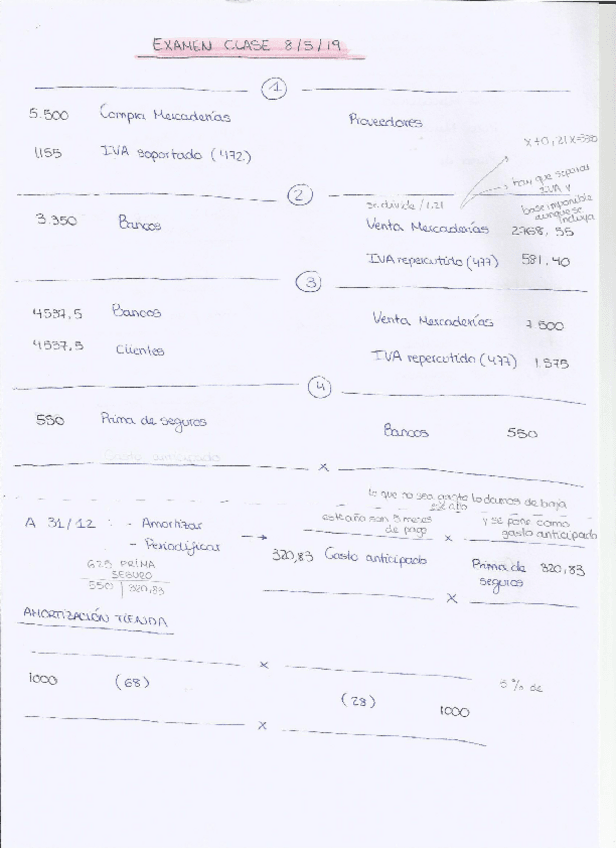 EXAMEN CLASE 8/5/19
1
5.500 Compra Mercaderías Proveedores
1155 IVA soportado (472)
x+0,21x=3350
hay que separar
IVA y
base imponible
aunque se
incluya
2
se divide /1.21
3.350 Bancos Venta Mercaderías 2768,55
IVA repercutido (477) 581,40
3
4537,5 Bancos Venta Mercaderías 7.500
4537,5 Clientes IVA repercutido (477) 1.575
4
550 Prima de seguros Bancos 550
Gasto anticipado
x
lo que no sea gasto lo damos de baja
este año
este año son 5 meses y se pone como
de pago x gasto anticipado
A 31/12 : - Amortizar
- Periodificar →
320,83 Gasto anticipado Prima de 320,83
seguros
625 PRIMA
SEGURO
550 | 320,83
x
AMORTIZACIÓN TIENDA
x
1000 (68) (28) 1000
5% de
x